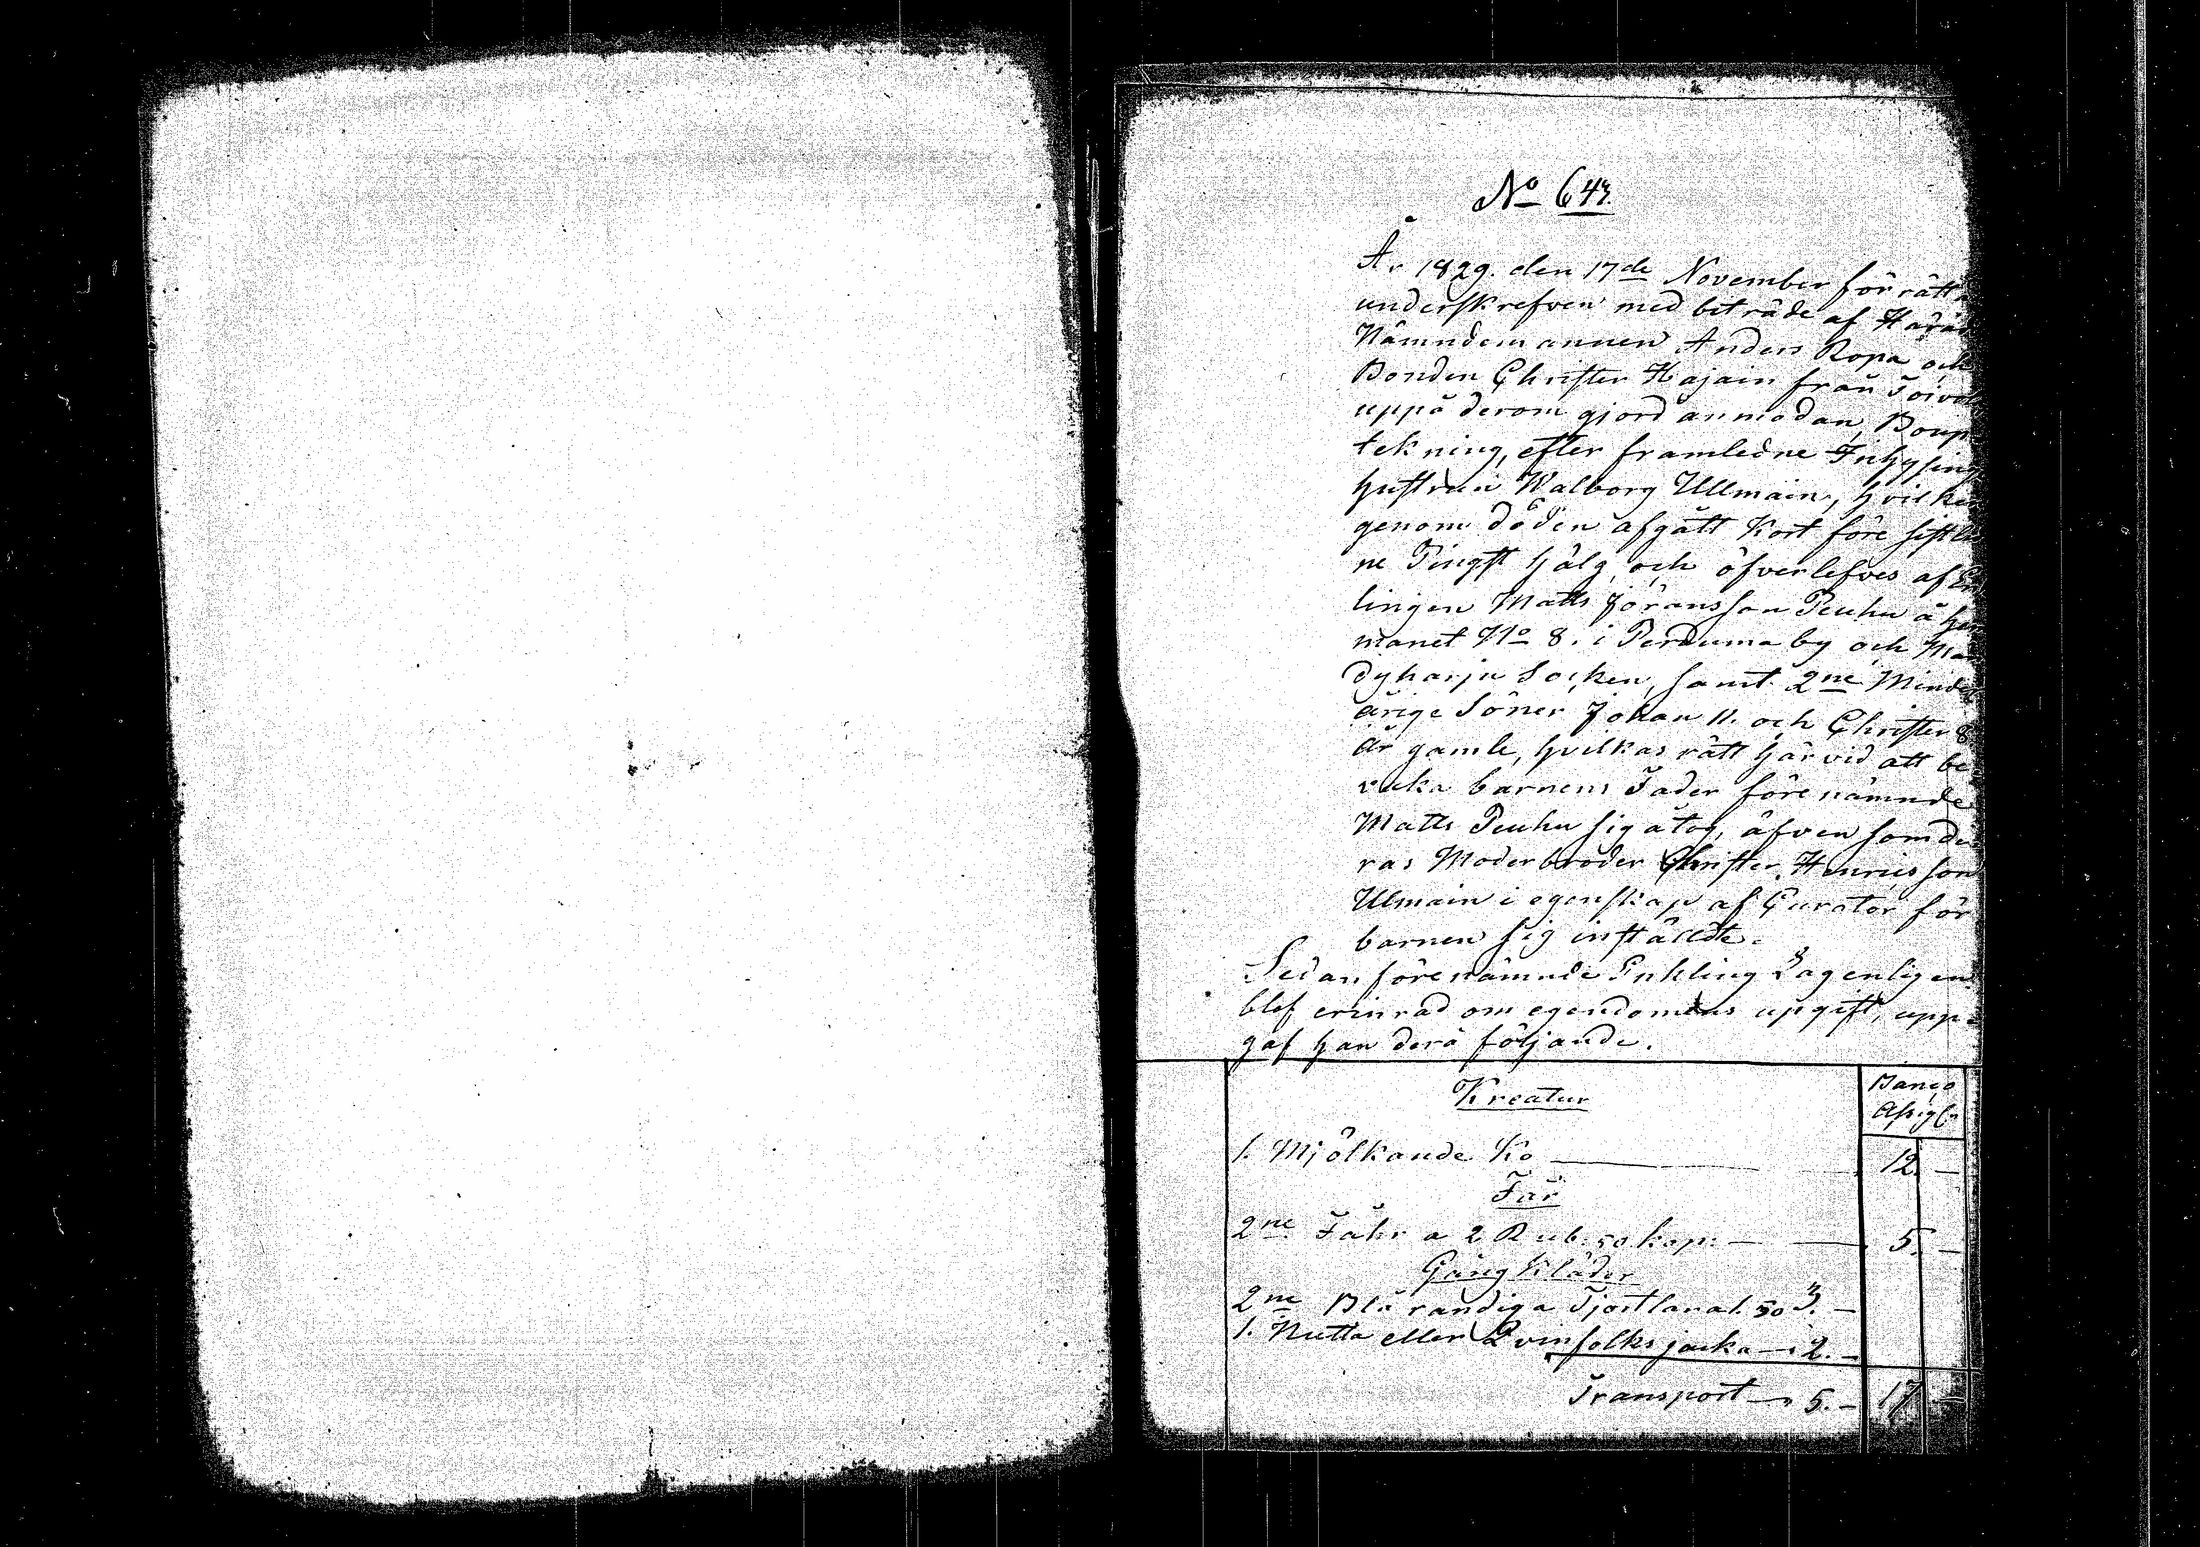 No 643.
År 1829. den 17de November förrätt
underskrefven med biträde af Härad
Nämndemannen Anders Ropa och
Bonden Christer Hajain från Toivol
uppå derom gjord anmodan, Boup
tekning, efter framledne Inhysing
hustrun Walborg Ullmain, hvilken
genom döden afgått kort före sistle
ne Pingst hälg, och öfverlefves af En
lingen Matts Jöransson Peuhu å hem
manet No 8. i Pertuma by och Män
dyharju Socken, samt 2ne Minder
årige Söner Johan 11. och Christer 8
år gamle, hvilkas rätt härvid att be
vaka barnens Fader förenämnde
Matts Peuhu sig åtog, äfven som de
ras Moderbroder Christer Henricsson
Ulmain i egenskap af Curator för
barnen sig instäldte.
Sedan förenämnde Enkling Lagenligen
blef erinrad om egendomens upgift, upp=
gaf han derå följande.
Kreatur
Banco
Assig:
1. Mjölkande Ko — 12. —
Får
2ne Fåhr a 2 Rub: 50 kop: — 5. —
Gång Kläder
2ne Blå randiga Tjortlar a 1. 50 3. —
1. Nutta eller Qvinfolks jacka — 2. —
Transport — 5. — 17 —